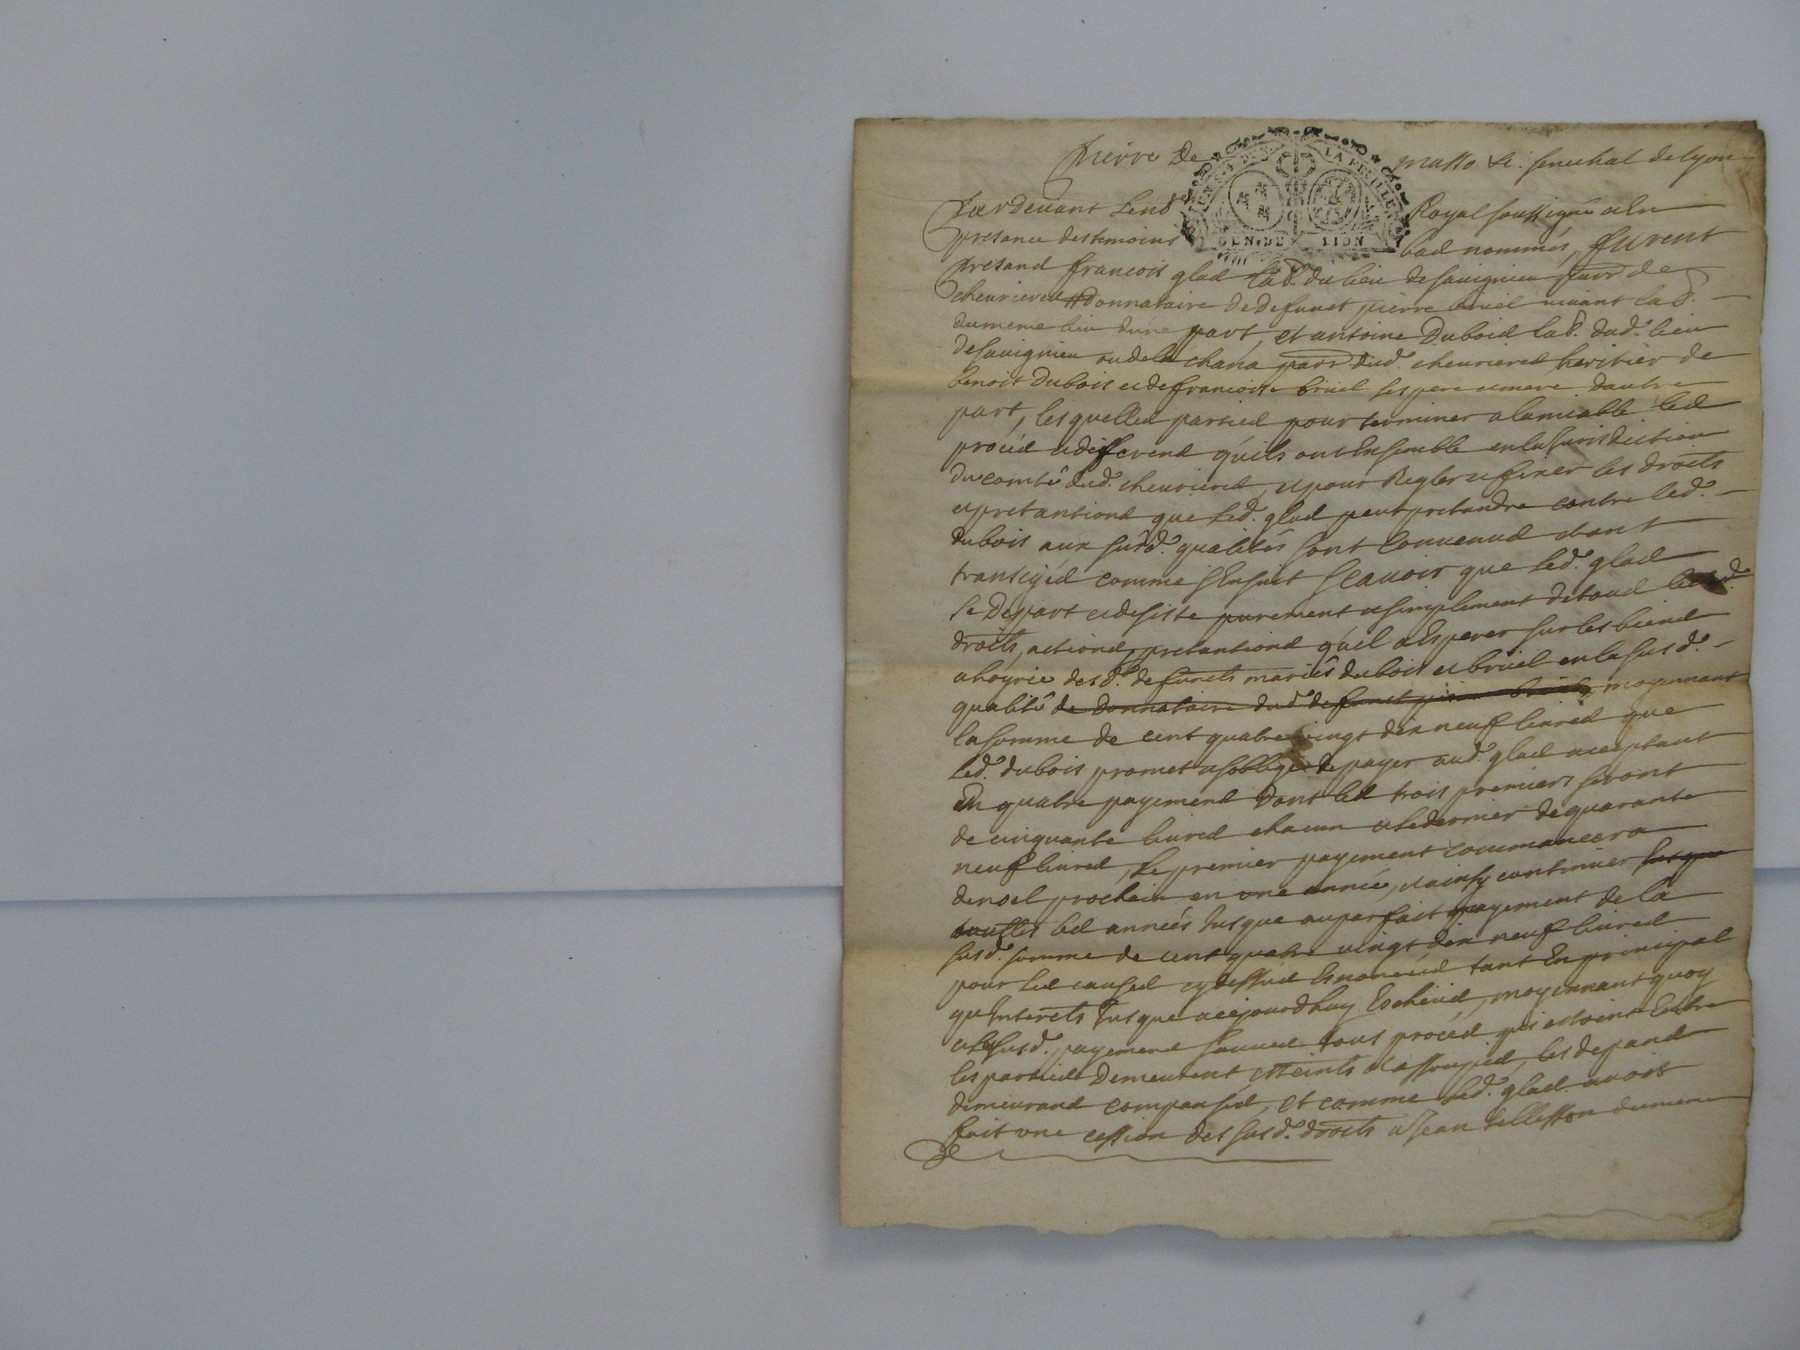 Pierre De masso &c. senechal de lyon
GEN. DE LION
Pardevant le no.re Royal soussigné & en
presance des temoins bas nommés, furent
presand francois glad la.b. du lieu de sauignieu parr. de
cheurieres donnataire de defunct pierre bruel vivant la.b.
du meme lieu dune part, et antoine Dubois la.b. dud. lieu
de sauignieu ou de la chana parr. dud. cheurieres heritier de
benoit Dubois et de francoise bruel ses pere et mere dautre
part, lesquelles parties pour terminer a lamiable les
procés et differend quils ont Ensemble en la Jurisdiction
du comté dud. cheurieres, et pour Regler et fixer les droits
et pretantions que led. glad peut pretandre contre led.
dubois aux susd. qualités sont convenus et ont
transigés comme sensuit Scavoir que led. glad
se Depart et desiste purement et simplement de tous les
droits, actions, pretantions quil a Esperer sur les biens
et hoyrie desd. defuncts mariés dubois et bruel en la susd.
qualité de donnataire dud. defunct pierre bruel moyennant
la somme de cent quatre vingt dix neuf livres que
led. dubois promet et soblige de payer aud. glad acceptant
En quatre payemens Dont les trois premiers seront
de cinquante livres chacun et le dernier de quarante
neuf livres, le premier payement commancera
de noel prochain en une année, et ainsy continuer jusque
touttes les années Jusque au parfait payement de la
susd. somme de cent quatre vingt dix neuf livres
pour les causes cy dessus Enoncées tant En principal
qu'Interets Jusque a cejourdhuy Escheus, moyennant quoy
et les susd. payemens tous procés qui estoint Entre
les parties Demeurent etteints et assoupies, les depand
demeurand compansés, et comme led. glad avoit
fait une cession des susd. droits a Jean tellesson du meme